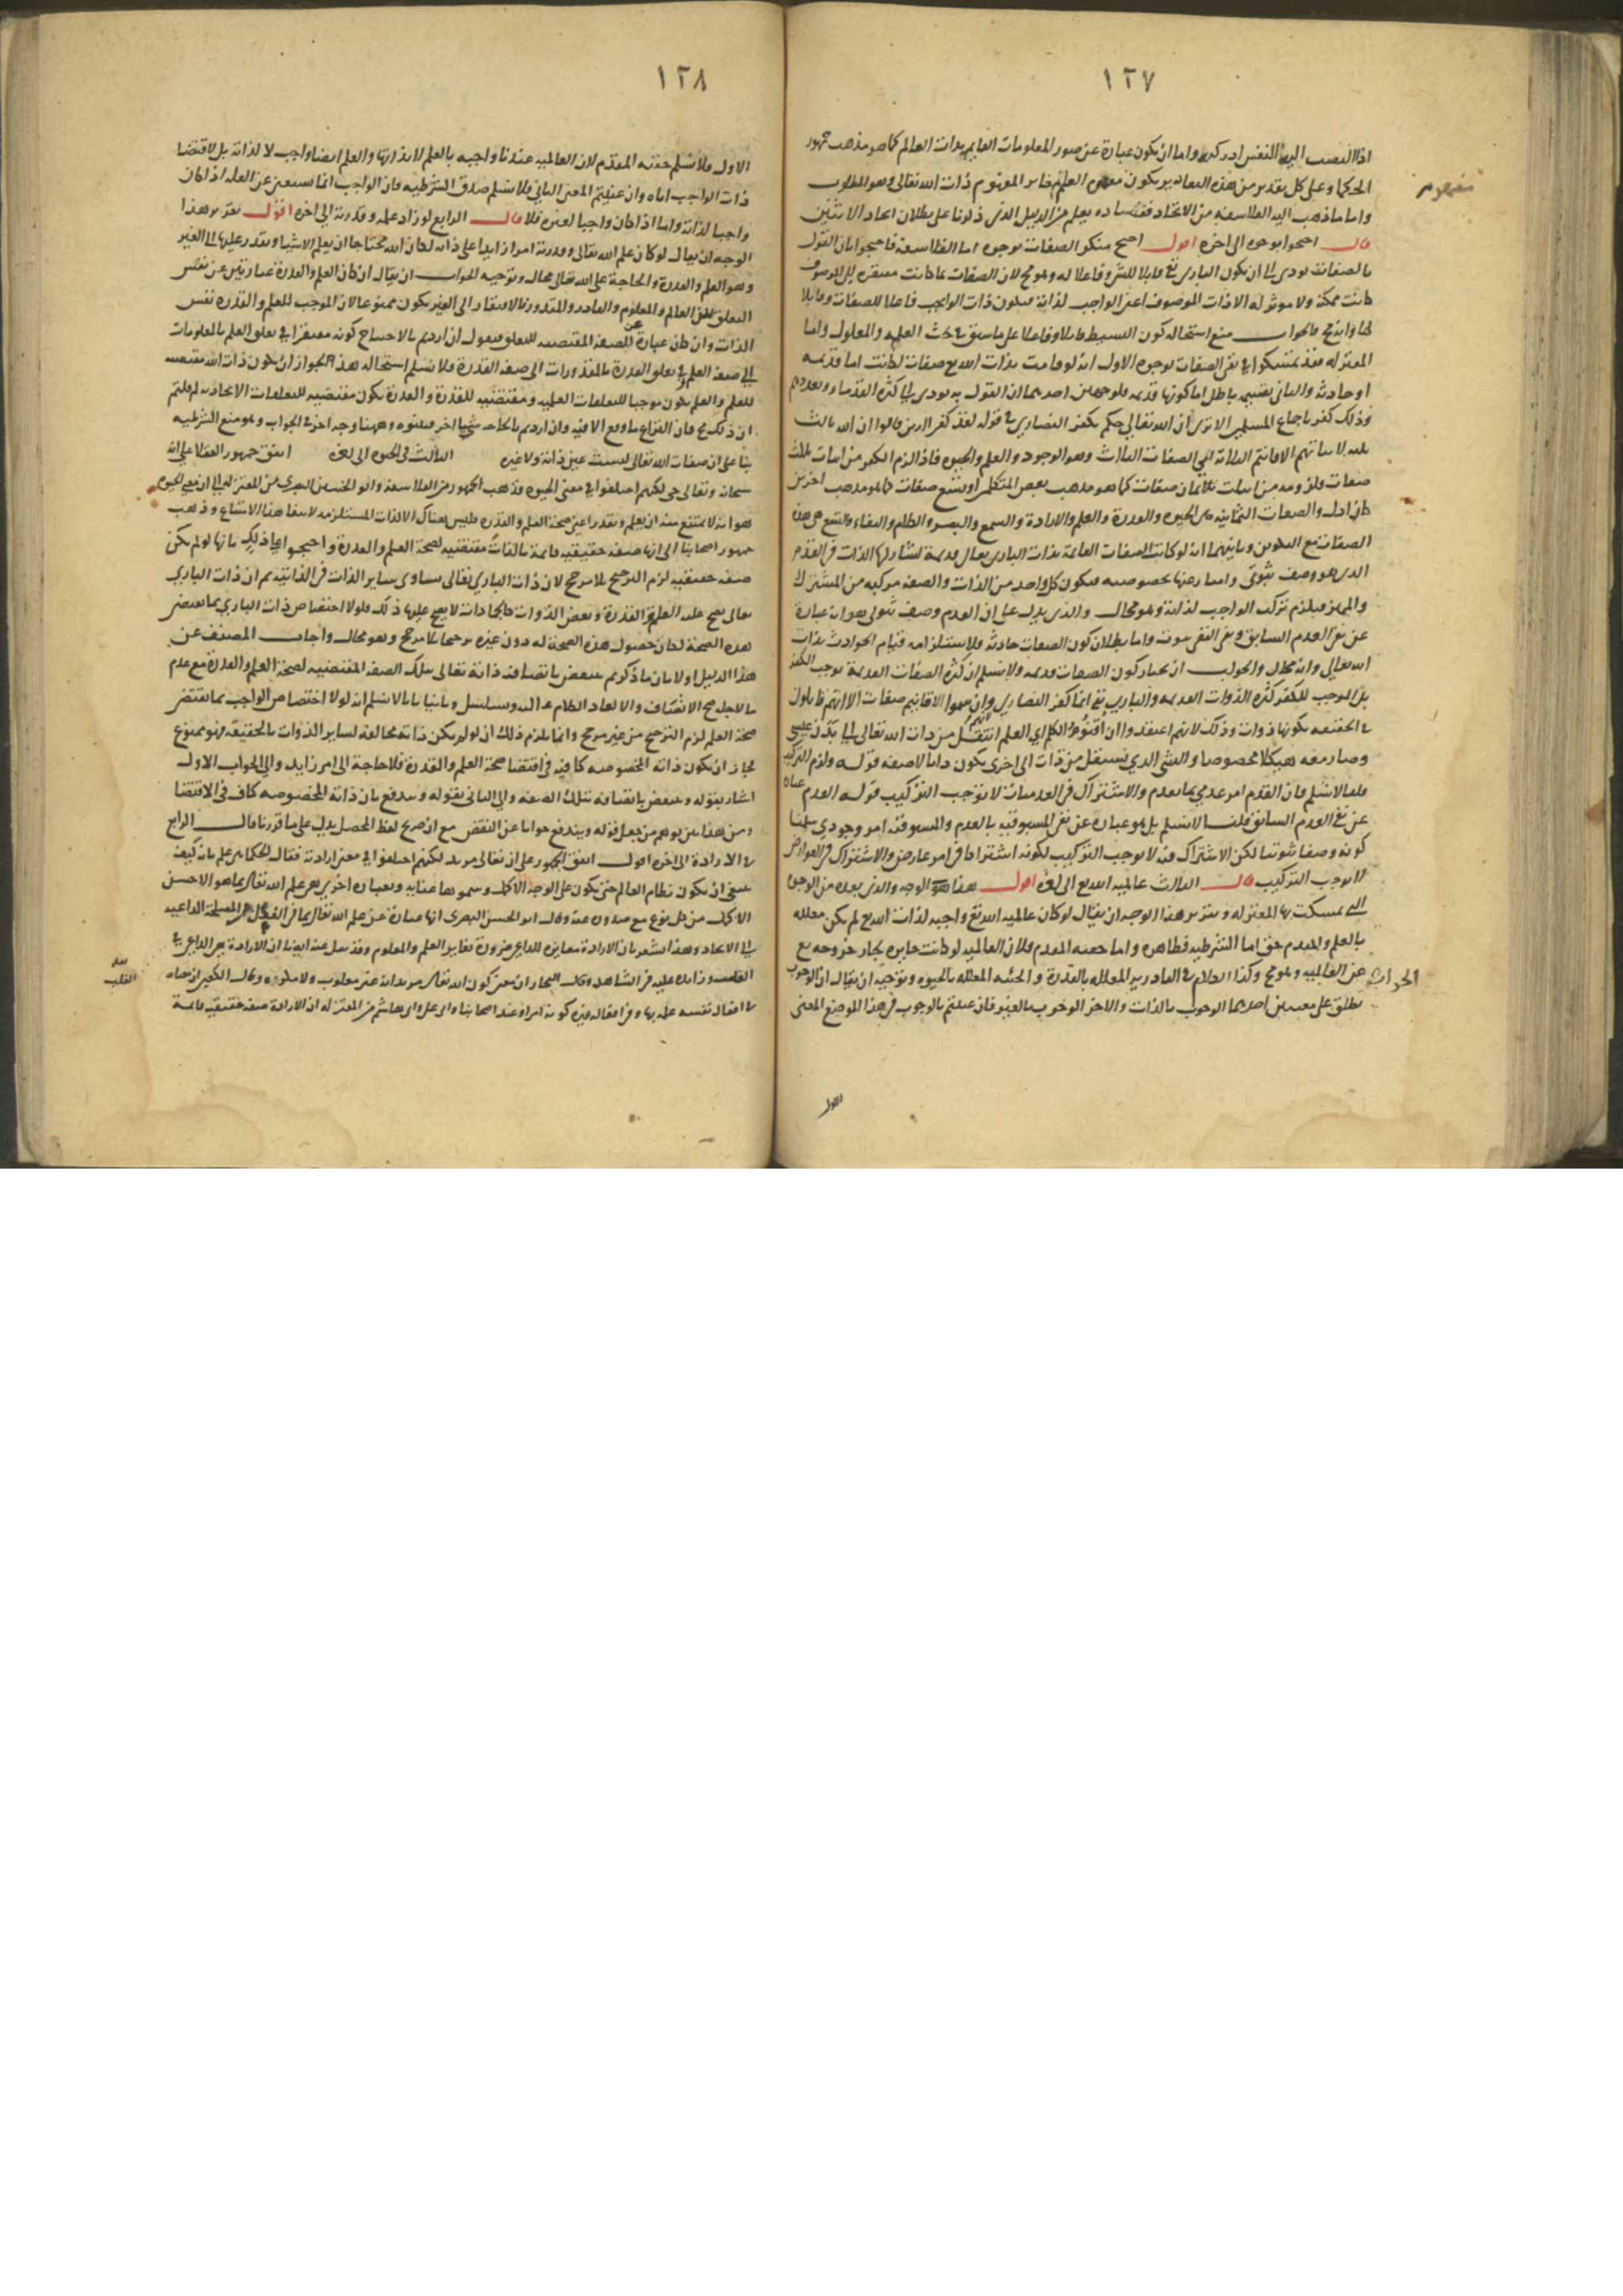 ١٢٧
اذا التفت اليها النفس ادركتها واما ان يكون عبارة عن صور المعلومات القايمة بذات العالم كما هو مذهب جمهور
الحكما وعلى كل تقدير من هذه التقادير يكون مفهوم العلم مغاير المفهوم ذات الله تعالى وهو المطلوب
واما ما ذهب اليه الفلاسفة من الاتحاد ففساده يعلم من الدليل الذي ذكرنا على بطلان اتحاد الاثنين
قال احتجوا بوجوه الى اخره اقول احتج منكر الصفات بوجوه اما الفلاسفة فاحتجوا بان القول
بالصفات يودي الى ان يكون الباري تع قابلا للشي وفاعلا له وهو مح لان الصفات لما كانت مفتقرة الى الموصوف
كانت ممكنة ولا موثر له الا ذات الموصوف اعني الواجب لذاته فيكون ذات الواجب فاعلا للصفات وقابلا
لها وانه مح والجواب منع استحالة كون البسيط قابلا وفاعلا على ما سبق في بحث العلة والمعلول واما
المعتزلة فقد تمسكوا في نفي الصفات بوجوه الاول انه لو قامت بذات الله تع صفات لكانت اما قديمة
او حادثة والثاني بقسميه باطل اما كونها قديمة فلوجهين احدهما ان القول به يودي الى كثرة القدماء وتعددهم
وذلك كفر باجماع المسلمين الا ترى ان الله تعالى حكم بكفر النصارى في قوله لقد كفر الذين قالوا ان الله ثالث
ثلثة لاثباتهم الاقانيم الثلاثة التي الصفات الثلاث وهو الوجود والعلم والحيوة فاذا لزم الكفر من اثبات ثلث
صفات فلزومه من اثبات ثمان صفات كما هو مذهب بعض المتكلمين او تسع صفات كما هو مذهب اخرين
كان اولى والصفات الثمانية هي الحيوة والقدرة والعلم والارادة والسمع والبصر والكلام والبقاء والتسع هي هذه
الصفات مع التكوين وثانيهما انه لو كانت الصفات القايمة بذات الباري تعالى قديمة لشاركها الذات في القدم
الذي هو وصف ثبوتي وامتاز عنها بخصوصيه فيكون كل واحد من الذات والصفة مركبة من المشترك
والمميز فيلزم تركب الواجب لذاته وهو محال والذي يدل على ان القدم وصف ثبوتي هو انه عبارة
عن نفي العدم السابق ونفي النفي ثبوت واما بطلان كون الصفات حادثة فلاستلزامه قيام الحوادث بذات
الله تعالى وانه محال والجواب انا نختار كون الصفات قديمة ولا نسلم ان كثرة الصفات القديمة توجب الكفر
بل الموجب للكفر كثرة الذوات القديمة والباري تع انما كفر النصارى وان سموا الاقانيم صفات الا انهم قايلون
في الحقيقة بكونها ذوات وذلك لانهم اعتقدوا ان اقنوم الكلم اي العلم انتقل من ذات الله تعالى الى بدن عيسى
وصار معه هيكلا مخصوصا والشي الذي يستقل من ذات الى اخرى يكون ذاتا لا صفة قوله ولزم التركيب
قلنا لا نسلم فان القدم امر عدمي والاشتراك في العدميات لا توجب التركيب قوله العدم عبارة
عن نفي العدم السابق قلنا لا نسلم بل هو عبارة عن نفي المسبوقية بالعدم والمسبوقية امر وجودي سلمنا
كونه وصفا ثبوتيا لكن الاشتراك فيه لا يوجب التركيب لكونه اشتراكا في امر عارض والاشتراك في العوارض
لا يوجب التركيب قال الثالث عالمية الله تع الى اخره اقول هذا هو الوجه والذي بعده من الوجوه
التي تمسكت بها المعتزلة وتقرير هذا الوجه ان يقال لو كان عالمية الله تع واجبة لذات الله تع لم يكن معللة
بالعلم والمقدم حق اما الشرطية فظاهرة واما حقية المقدم فلان العالمية لو كانت جايزة لجاز خروجه تع
عن العالمية وهو مح وكذا الكلام في القادرية المعللة بالقدرة والحية المعللة بالحيوة وتوجيه ان يقال ان الوجوب
يطلق على معنيين احدهما الوجوب بالذات والاخر الوجوب بالغير فان عنيتم بالوجوب في هذا الموضع المعنى
مفهوم
الجواب
الاول
١٢٨
الاول فلا نسلم حقية المقدم لان العالمية عندنا واجبة بالعلم لا بذاتها والعلم ايضا واجب لا لذاته بل لاقتضا
ذات الواجب اياه وان عنيتم المعنى الثاني فلا نسلم صدق الشرطية فان الواجب انما يستغني عن العلة اذا كان
واجبا لذاته واما اذا كان واجبا لغيره فلا قال الرابع لو زاد علمه وقدرته الى اخره اقول تقرير هذا
الوجه ان يقال لو كان علم الله تعالى وقدرته امرا زايدا على ذاته لكان الله محتاجا ان يعلم الاشيا ويقدر عليها الى الغير
وهو العلم والقدرة والحاجة على الله تعالى محال وتوجيه الجواب ان يقال ان كان العلم والقدرة عبارتين عن نفس
التعلق بين العالم والمعلوم والقادر والمقدور فالافتقار الى الغير يكون ممنوعا لان الموجب للعلم والقدرة نفس
الذات وان كان عبارة عن الصفة المقتضية للتعلق فنقول ان اردتم بالاحتياج كونه مفتقرا في تعلق العلم بالمعلومات
الى صفة العلم وفي تعلق القدرة بالمقدورات الى صفة القدرة فلا نسلم استحالة هذا لجواز ان يكون ذات الله مقتضية
للعلم والعلم يكون موجبا للتعلقات العلمية ومقتضية للقدرة والقدرة يكون مقتضية للتعلقات الايجادية لم قلتم
ان ذلك مح فان النزاع ما وقع الا فيه وان اردتم بالحاجة شيا اخر فبينوه وههنا وجه اخر في الجواب وهو منع الشرطية
بنا على ان صفات الله تعالى ليست عين ذاته ولا غيره الثالث في الحيوة الى اخره اتفق جمهور العقلا على انه
سبحانه وتعالى حي لكنهم اختلفوا في معنى الحيوة وذهب الجمهور من الفلاسفة وابو الحسين البصري من المعتزلة الى ان معنى الحيوة
هو انه لا يمتنع منه ان يعلم ويقدر اعني صحة العلم والقدرة فليس هناك الا الذات المستلزمة لانتفا هذا الامتناع وذهب
جمهور اصحابنا الى انها صفة حقيقية قايمة بالذات مقتضية لصحة العلم والقدرة واحتجوا على ذلك بانها لو لم يكن
صفة حقيقية لزم الترجيح بلا مرجح لان ذات الباري تعالى تساوى ساير الذات في الذاتية ثم ان ذات الباري
تعالى يصح عليه العلم والقدرة وبعض الذوات كالجمادات لا يصح عليها ذلك فلولا اختصاص ذات الباري بما يقتضي
هذه الصحة لكان حصول هذه الصحة له دون غيره ترجيحا بلا مرجح وهو محال واجاب المصنف عن
هذا الدليل اولا بان ما ذكرتم منقوض باتصاف ذاته تعالى بتلك الصفة المقتضية لصحة العلم والقدرة مع عدم
ما لاجله صح الاتصاف والا لعاد الكلام عليه وتسلسل وثانيا بانا لا نسلم انه لولا اختصاص الواجب بما يقتضي
صحة العلم لزم الترجيح من غير مرجح وانما يلزم ذلك ان لو لم يكن ذاته مخالفة لساير الذوات بالحقيقة فهو ممنوع
لجاز ان يكون ذاته المخصوصة كافية في اقتضا صحة العلم والقدرة فلا حاجة الى امر زايد والى الجواب الاول
اشار بقوله ونقض باتصافه بتلك الصفة والى الثاني بقوله ويدفع بان ذاته المخصوصة كاف في الاقتضا
ومن هذا تبين توهم من جعل قوله ويندفع جوابا عن النقض مع ان صريح لفظ المحصل يدل على ما قررنا قال الرابع
في الارادة الى اخره اقول اتفق الجمهور على انه تعالى مريد لكنهم اختلفوا في معنى ارادته فقال الحكماء هي علمه بانه كيف
ينبغي ان يكون نظام العالم حتى يكون على الوجه الاكمل وسموها عناية وبعبارة اخرى هي علم الله تعالى بما هو الاحسن
الاكمل من كل نوع مع صدوره عنه وقال ابو الحسين البصري انها عبارة عن علم الله تعالى بما في الفعل من المصلحة الداعية
الى الايجاد وهذا اشعر بان الارادة مغايرة للداعي ضرورة تغاير العلم والمعلوم وقد نقل عنه ايضا ان الارادة هي الداعي في
الغايب وزايدة عليه في الشاهد وقال النجار ان معنى كون الله تعالى مريدا انه غير مغلوب ولا مكره وقال الكعبي ان معناه
في افعال نفسه علمه بها وفي افعال غيره كونه امرا وعند اصحابنا وابي علي وابي هاشم من المعتزلة ان الارادة صفة حقيقية قايمة